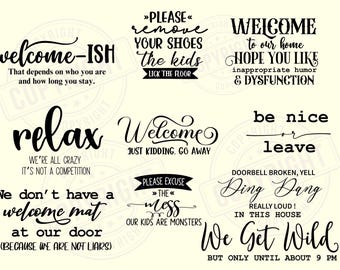 welcome-ISH
That depends on who you are
and how long you stay.
PLEASE
remove
YOUR SHOES
the kids
LICK THE FLOOR
WELCOME
to our home
HOPE YOU LIKE
inappropriate humor
& DYSFUNCTION
relax
WE'RE ALL CRAZY
IT'S NOT A COMPETITION
Welcome
JUST KIDDING, GO AWAY
be nice
or
leave
We don't have a
welcome mat
at our door
(BECAUSE WE ARE NOT LIARS)
PLEASE EXCUSE
the
mess
OUR KIDS ARE MONSTERS
DOORBELL BROKEN, YELL
Ding Dang
REALLY LOUD !
IN THIS HOUSE
We Get Wild
BUT ONLY UNTIL ABOUT 9 PM